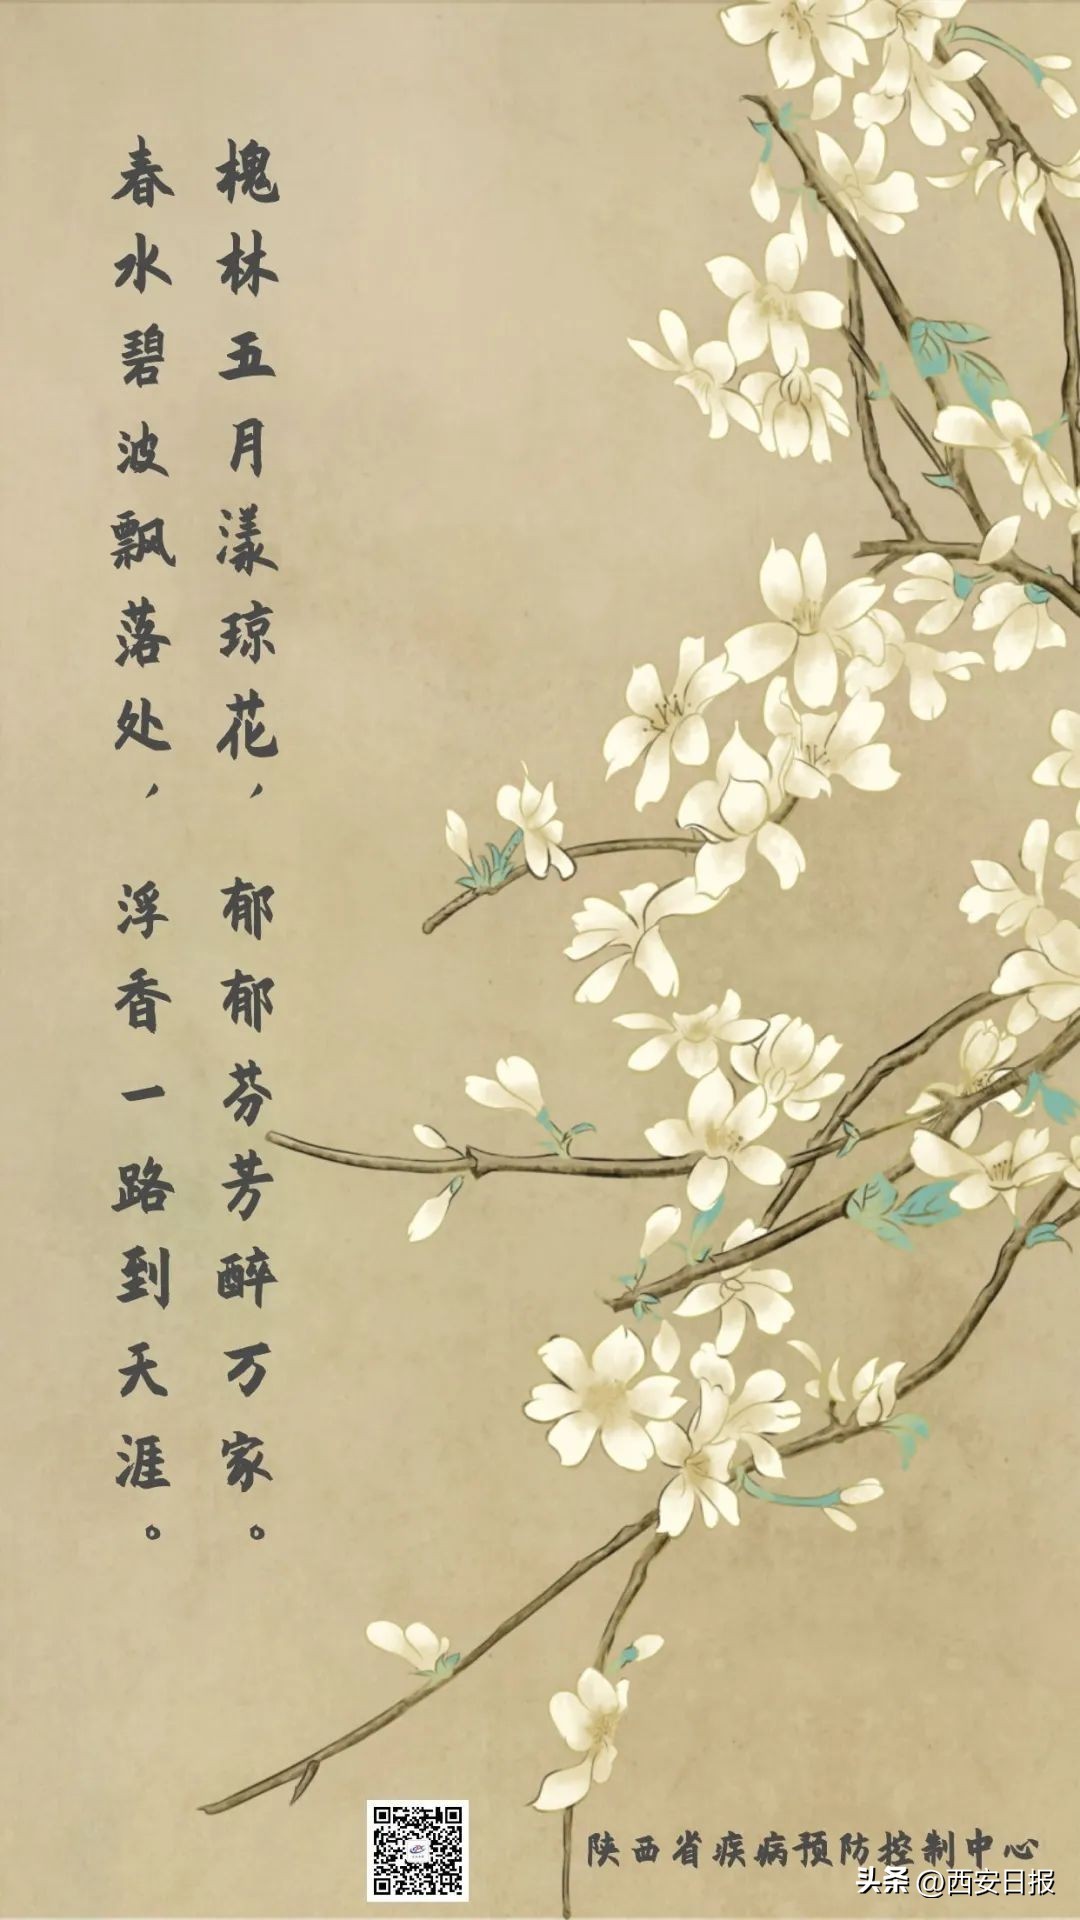 槐林五月漾琼花，郁郁芬芳醉万家。
春水碧波飘落处，浮香一路到天涯。
陕西省疾病预防控制中心
头条 @西安日报